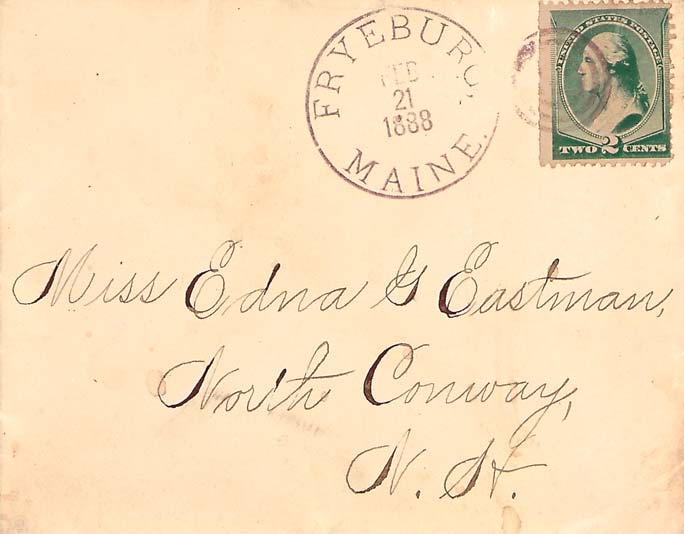 FRYEBURG,
FEB
21
1888
MAINE.
UNITED STATES POSTAGE
TWO 2 CENTS
Miss Edna G Eastman,
North Conway,
N. H.